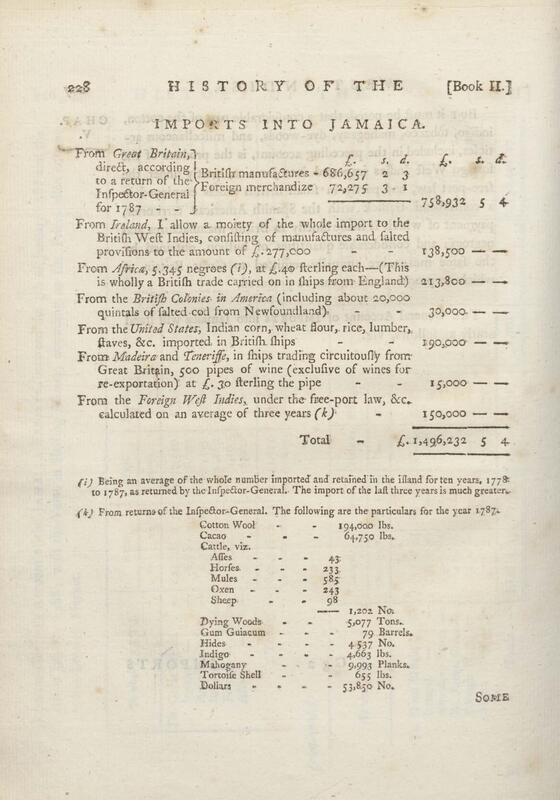 228 HISTORY OF THE [Book II.]
IMPORTS INTO JAMAICA.
From Great Britain,
direct, according
to a return of the
Inſpector-General
for 1787 - -
£. s. d. £. s. d.
Britiſh manufactures - 686,657 2 3
Foreign merchandize 72,275 3 1
758,932 5 4
From Ireland, I allow a moiety of the whole import to the
Britiſh Weſt Indies, conſiſting of manufactures and ſalted
proviſions to the amount of £.277,000 - - 138,500 — —
From Africa, 5.345 negroes (i), at £.40 ſterling each—(This
is wholly a Britiſh trade carried on in ſhips from England) 213,800 — —
From the Britiſh Colonies in America (including about 20,000
quintals of ſalted cod from Newfoundland) - - 30,000 — —
From the United States, Indian corn, wheat flour, rice, lumber,
ſtaves, &c. imported in Britiſh ſhips - - 190,000 — —
From Madeira and Teneriffe, in ſhips trading circuitouſly from
Great Britain, 500 pipes of wine (excluſive of wines for
re-exportation) at £.30 ſterling the pipe - - 15,000 — —
From the Foreign Weſt Indies, under the free-port law, &c.
calculated on an average of three years (k) - 150,000 — —
Total - £.1,496,232 5 4
(i) Being an average of the whole number imported and retained in the iſland for ten years, 1778
to 1787, as returned by the Inſpector-General. The import of the laſt three years is much greater.
(k) From returns of the Inſpector-General. The following are the particulars for the year 1787.
Cotton Wool - - 194,000 lbs.
Cacao - - - 64,750 lbs.
Cattle, viz.
Aſſes - - - 43
Horſes - - - 233
Mules - - - 585
Oxen - - - 243
Sheep - - 98
—— 1,202 No.
Dying Woods - - 5,077 Tons.
Gum Guiacum - - - 79 Barrels.
Hides - - - - 4.537 No.
Indigo - - - - 4,663 lbs.
Mahogany - - - 9,993 Planks.
Tortoiſe Shell - - 655 lbs.
Dollars - - - - 53,850 No.
SOME